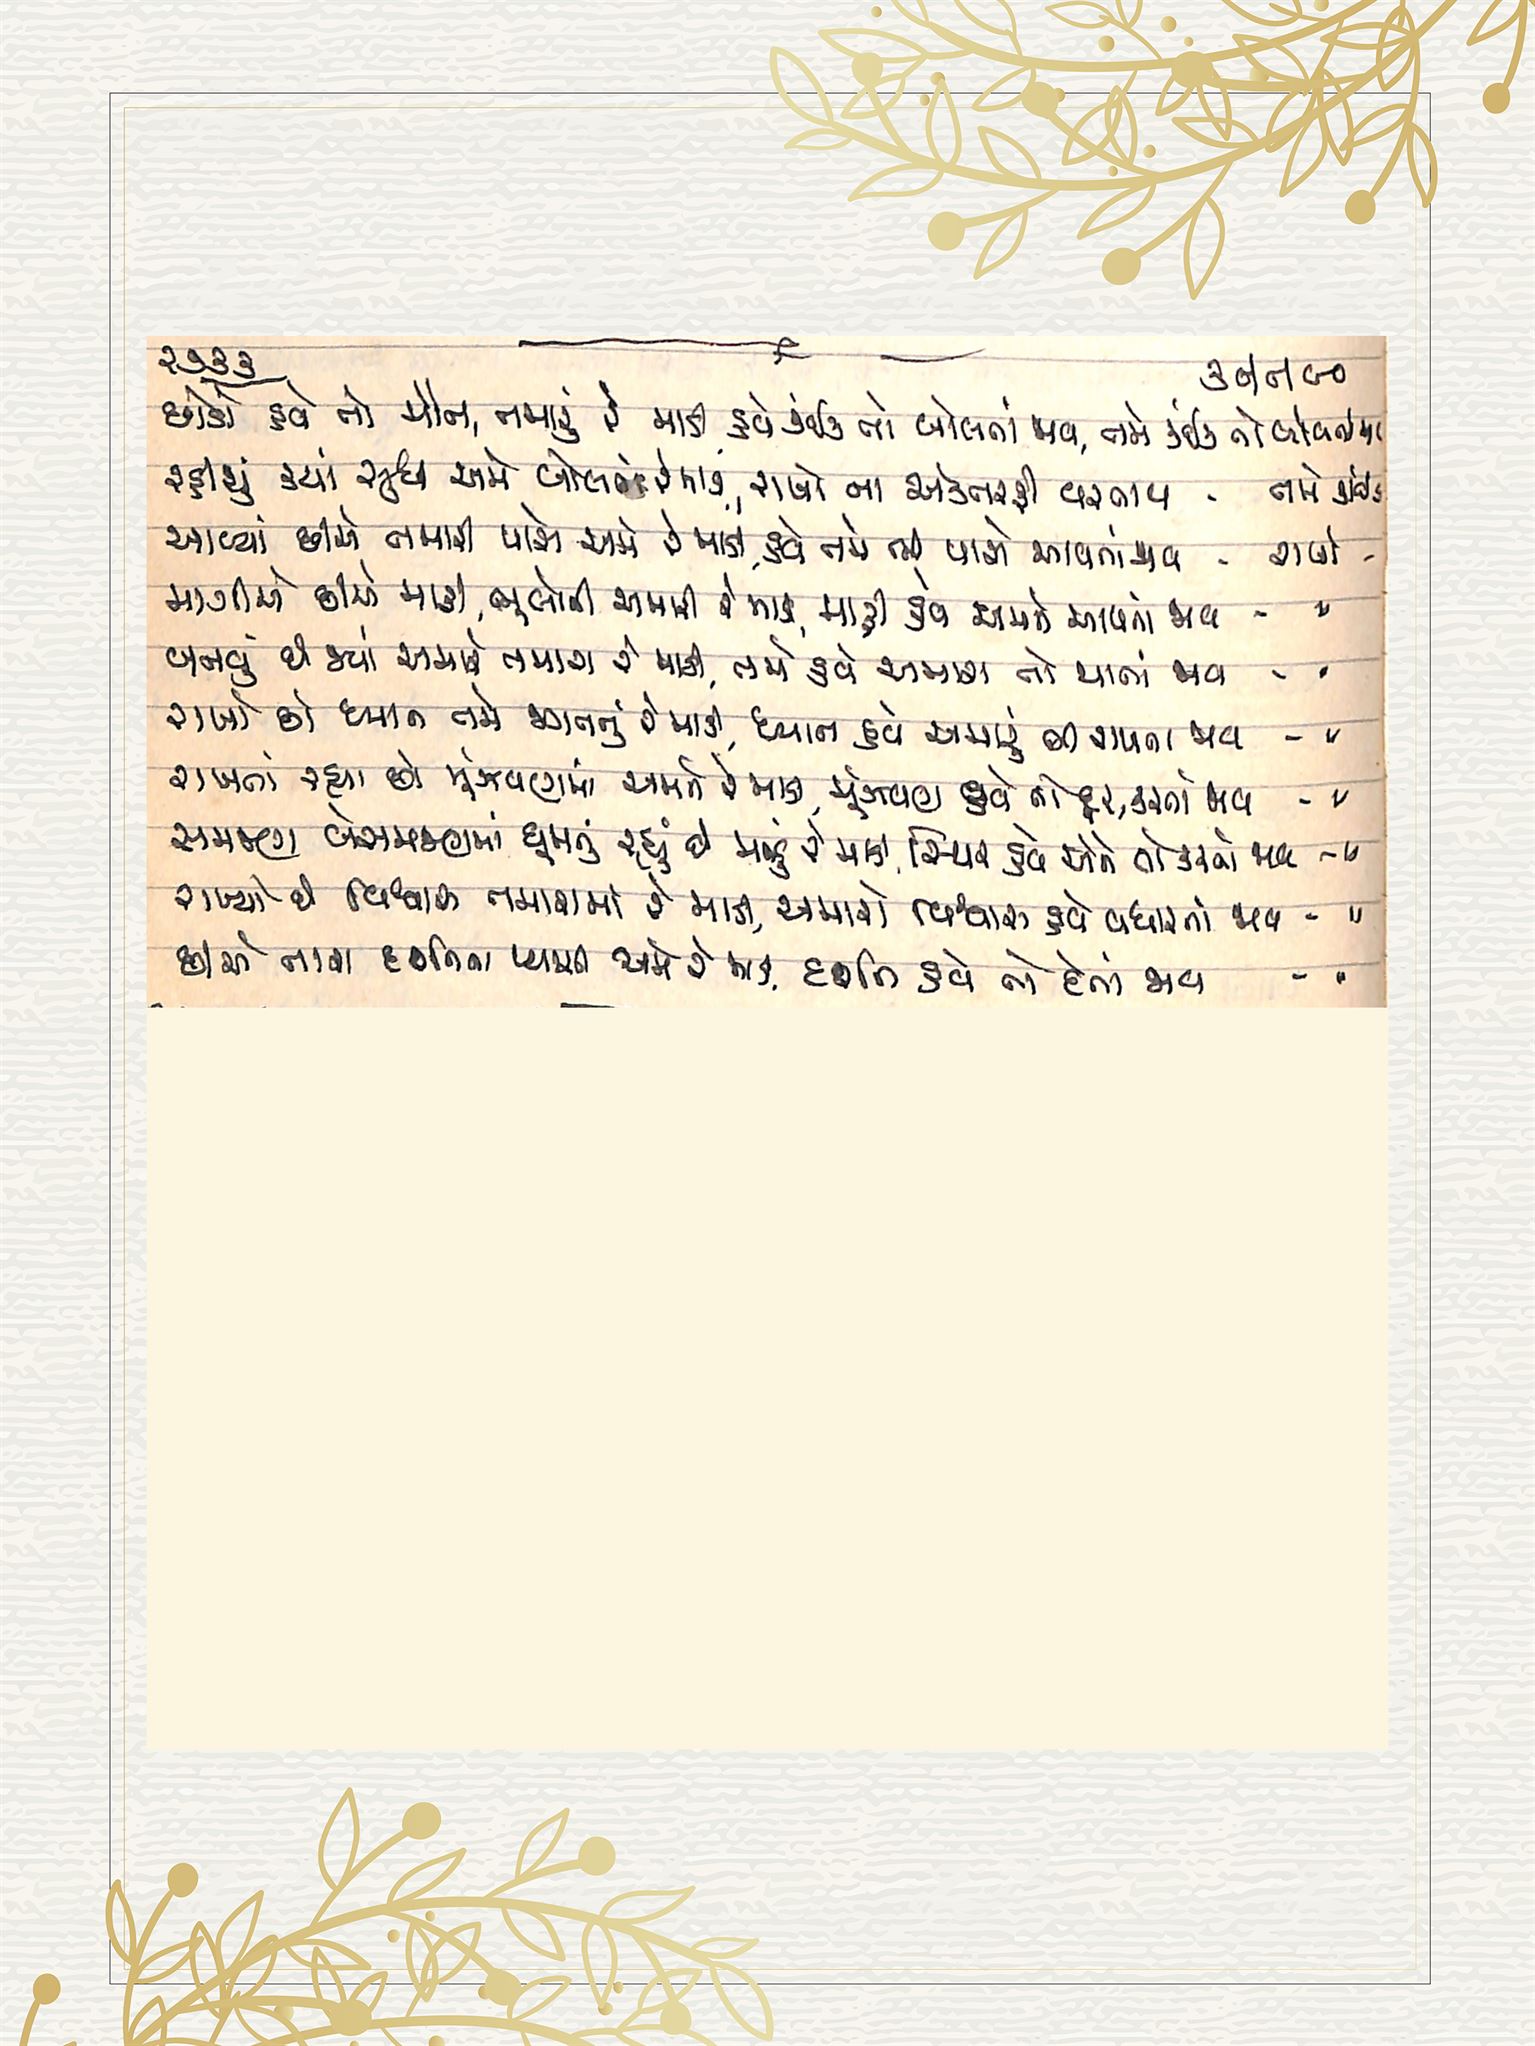 ૨૭૩૩
છોડો હવે તો મૌન, તમારું રે માડી, હવે કંઈક તો બોલતાં જાવ, તમે કંઈક તો બોલતાં જાવ
રહીશું ક્યાં સુધી અમે બોલતાં રે માડી, રાખો ના એકતરફી વરતાવ - તમે કંઈક
આવ્યાં છીએ તમારી પાસે અમે રે માડી, હવે તમે ભી પાસે આવતાં જાવ - રાખો -
માગીએ છીએ માફી, ભૂલોની અમારી રે માડી, માફી હવે અમને આપતાં જાવ - "
બનવું છે જ્યાં અમારે તમારા રે માડી, તમે હવે અમારા તો થાતાં જાવ - "
રાખો છો ધ્યાન તમે જગતનું રે માડી, ધ્યાન હવે અમારું ભી રાખતા જાવ - "
રાખતાં રહ્યા છો મૂંઝવણમાં અમને રે માડી, મૂંઝવણ હવે તો દૂર, કરતાં જાવ - "
સમજણ બેસમજણમાં ઘૂમતું રહ્યું છે મનડું રે માડી, સ્થિર હવે એને તો કરતો જાવ - "
રાખ્યો છે વિશ્વાસ તમારામાં રે માડી, અમારો વિશ્વાસ હવે વધારતાં જાવ - "
છીએ તારા દર્શનના પ્યાસી અમે રે માડી, દર્શન હવે તો દેતાં જાવ - "